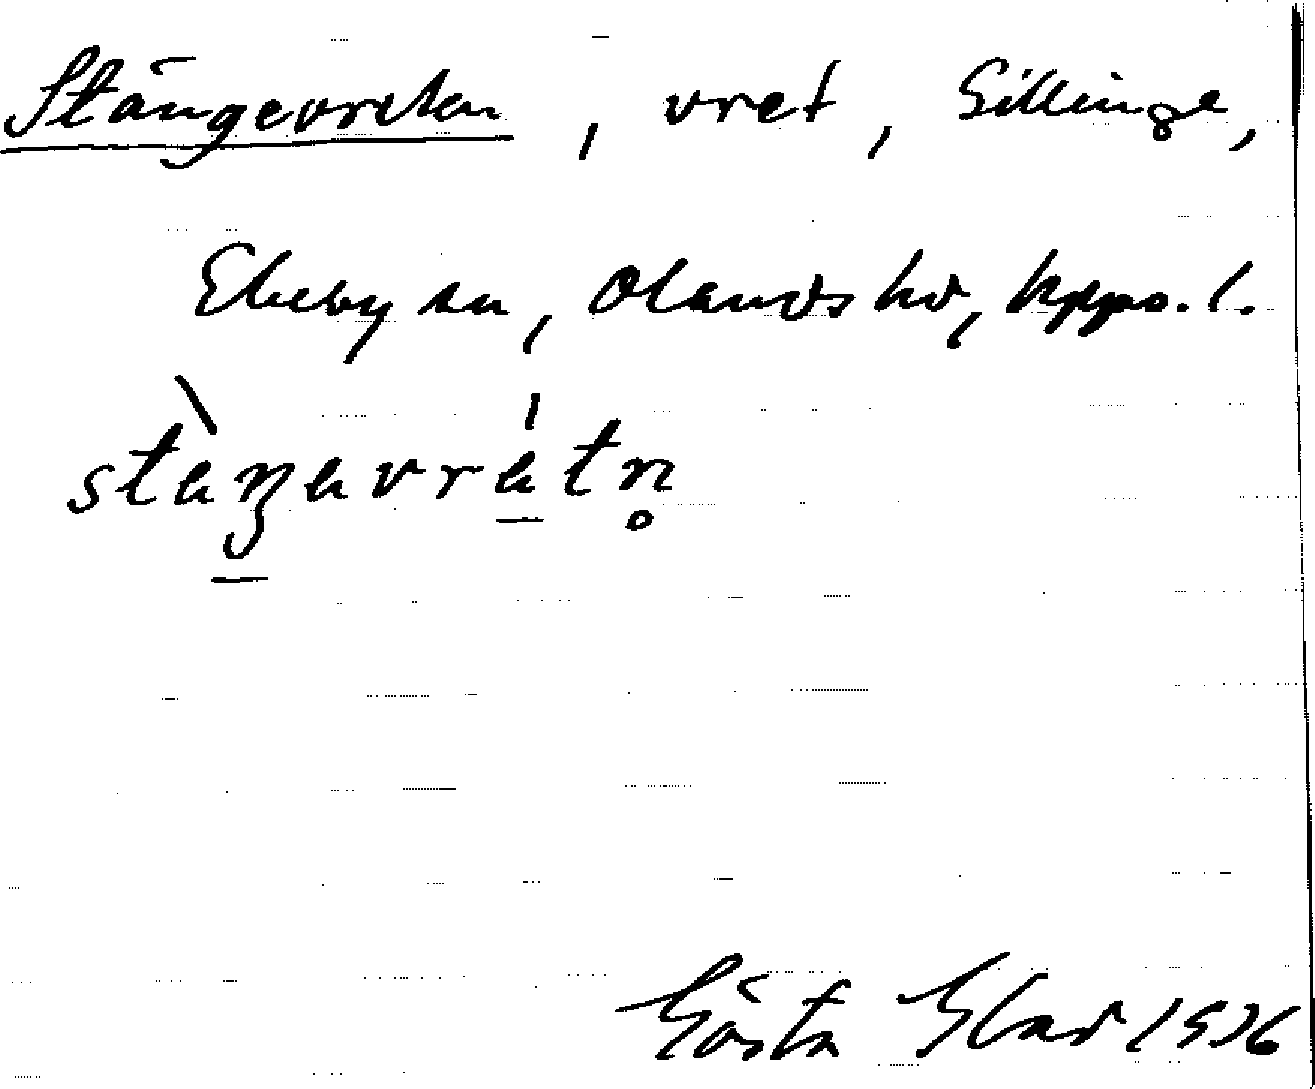 Stängevreten, vret, Gillinge,
Ekeby sn, Olands hd, Upps. l.
stäŋavrätn̥
Gösta Elar 1936